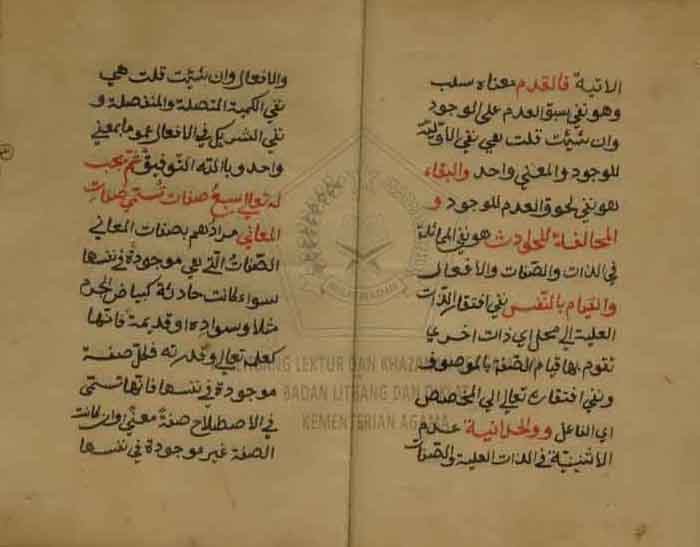 الاتية فالقدم معناه سلب
وهو نفي سبق العدم على الوجود
وان شئت قلت هي نفي الاولية
للوجود والمعنى واحد والبقاء
هو نفي لحوق العدم للوجود و
المخالفة للحوادث هو نفي المماثلة
في الذات والصفات والافعال
والقيام بالنفس نفي افتقار الذات
العلية الى محل اي ذات اخرى
تقوم بها قيام الصفة بالموصوف
ونفي افتقاره تعالى الى المخصص
اي الفاعل ووالحدانية عدم
الاثنينية في الذات العلية والصفات
والافعال وان شئت قلت هي
نفي الكمية المتصلة والمنفصلة و
نفي الشريك في الافعال عموما بمعنى
واحد وبالله التوفيق ثم يجب
له تعالى سبع صفات تسمى صفات
المعاني مرادهم بصفات المعاني
الصفات التي هي موجودة في نفسها
سواء كانت حادثة كبياض الجرم
مثلا وسواده او قديمة فانها
كعلمه تعالى وقدرته فكل صفة
موجودة في نفسها فانها تسمى
في الاصطلاح صفة معنى وان كانت
الصفة غير موجودة في نفسها
PUSLITBANG LEKTUR DAN KHAZANAH
BADAN LITBANG DAN DIKLAT
KEMENTERIAN AGAMA